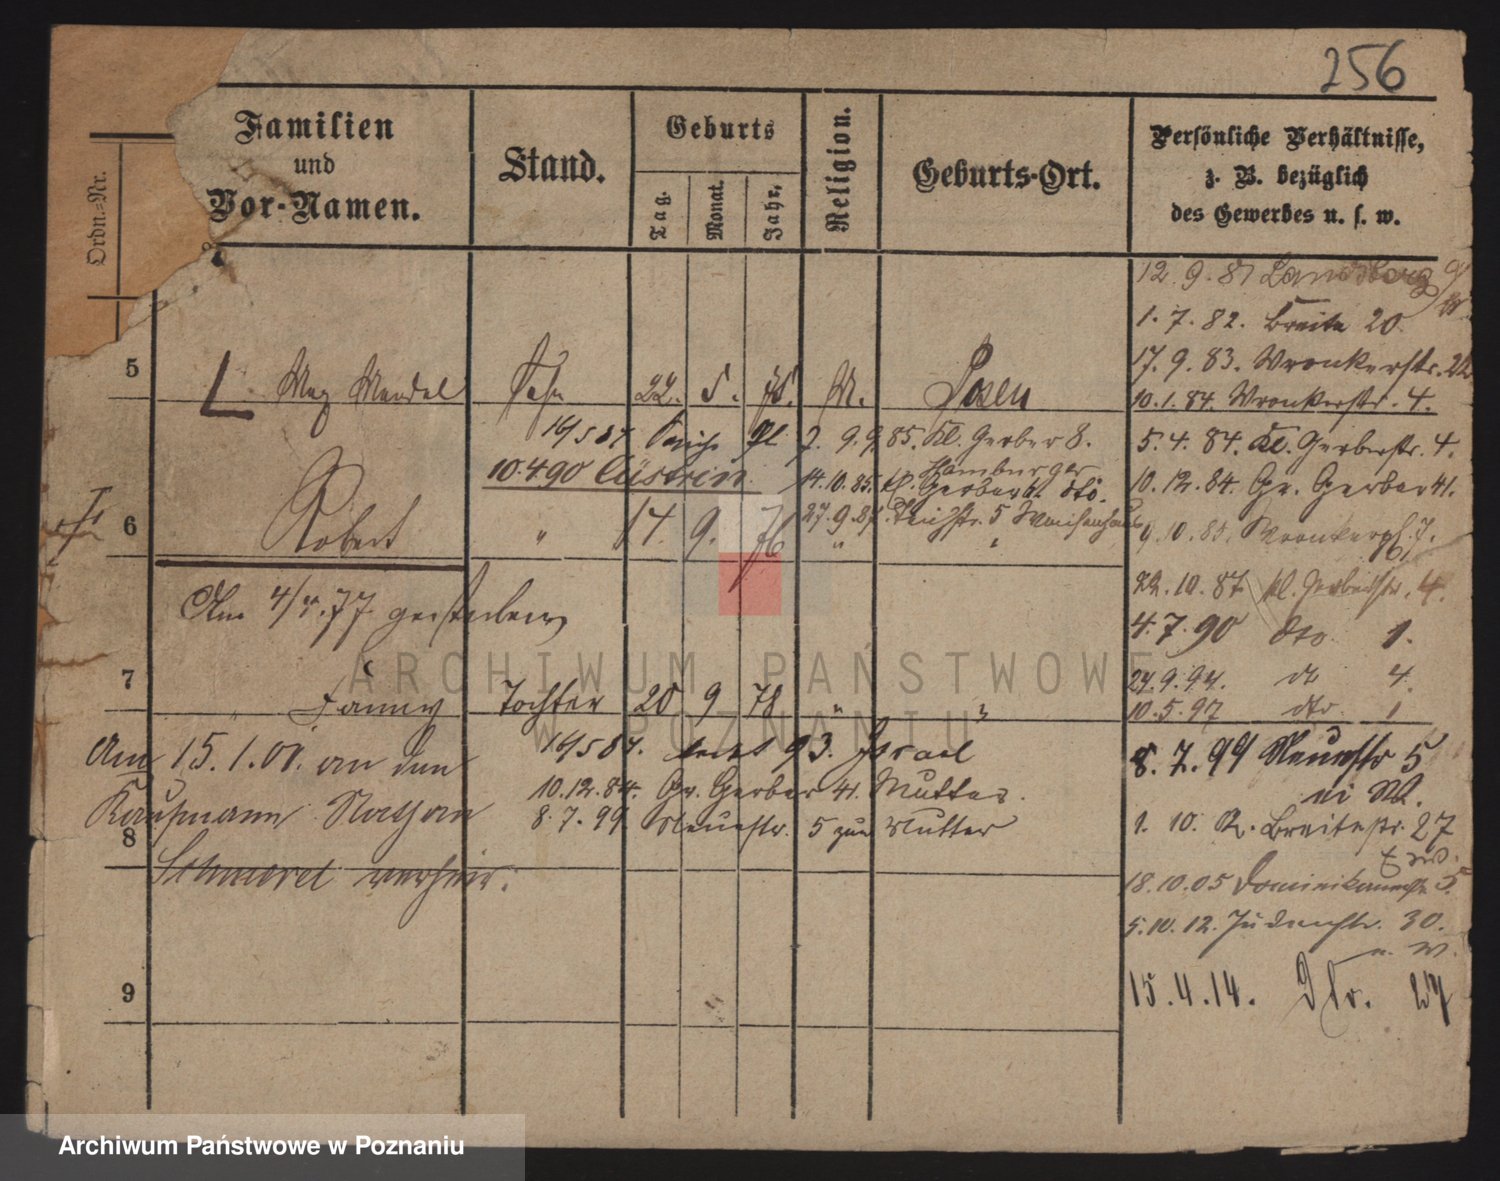 256
Ordn.-Nr.
Familien
und
Vor-Namen.
Stand.
Geburts
Tag.
Monat.
Jahr.
Religion.
Geburts-Ort.
Persönliche Verhältnisse,
z. B. bezüglich
des Gewerbes u. s. w.
12.9.81 Landsberg
1.7.82. Breite 20.
17.9.83. Wronkerstr. 22
5 Max Mendel Sohn 22. 5. 75. M. Posen
10.1.84. Wronkerstr. 4.
16/5 87 9.9.85. Kl. Gerber 8.
5.4.84. Kl. Gerberstr. 4.
10.4.90 Cüstrin 14.10.85. Hamburger
Gerber dto.
10.12.84. Gr. Gerber 41.
27.9.87. Teichstr. 5 Waisenhaus
6 Robert " 17. 9. 76 " "
9.10.85. Wronkerpl. 7.
Am 4/ .77 gestorben
22.10.87 kl. Gerberstr. 4.
4.7.90 dto. 1.
24.9.94. dto 4.
7 " Fanny Tochter 20 9 78 " "
10.5.97 dto. 1
Am 15.1.01. an den
16/5 87. 93. Israel
8.7.99 Neuestr 5
bei M.
Kaufmann Nathan
10.12.84. Gr. Gerber 41. Mutter.
8.7.99 Neuestr. 5 zur Mutter
8
1.10. Breitestr. 27
Schmerel verheir.
18.10.05 Dominikanerstr 5.
5.10.12. Judenstr. 30.
u. W.
9
15.4.14. Dto. 27
ARCHIWUM PAŃSTWOWE
W POZNANIU
Archiwum Państwowe w Poznaniu